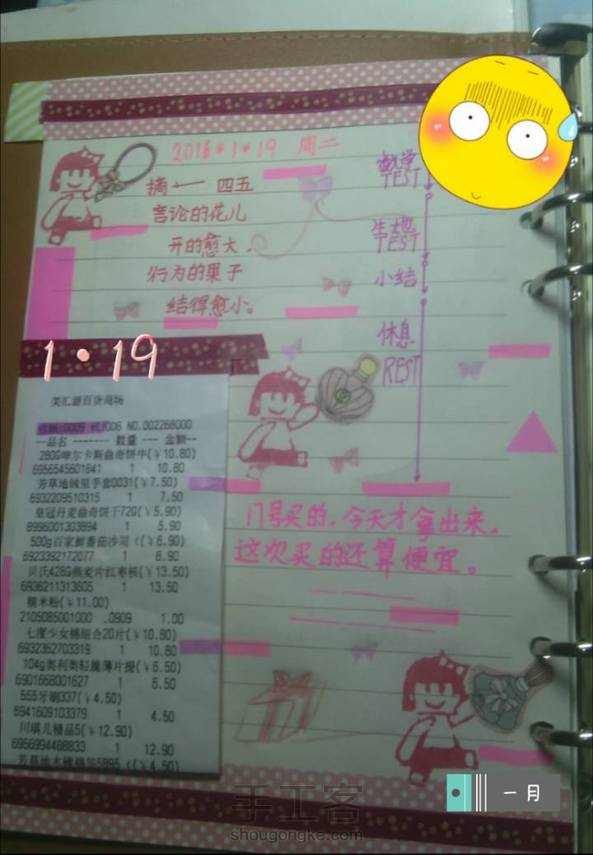 2016·1·19 周二
摘一 四五
言论的花儿
开的愈大,
行为的果子
结得愈小。
数学
TEST
生地
TEST
小结
休息
REST
1·19
美汇源百货商场
收银:0005 机:006 NO.002268000
--品名 -------- 数量 --- 金额--
(¥10.80)
6956545601641 1 10.80
芳草地绒里手套0031(¥7.50)
6932209510315 1 7.50
皇冠丹麦曲奇饼干72G(¥5.90)
8996001303894 1 5.90
500g百家鲜番茄沙司((¥6.90)
6923392172077 1 6.90
贝沃428G燕麦片红枣核(¥13.50)
6936211313605 1 13.50
糯米粉(¥11.00)
2105085001000 .0909 1.00
七度少女棉组合20片(¥10.80)
6932352703319 1 10.80
104g奥利奥轻脆薄片提(¥6.50)
6901668001627 1 6.50
555牙刷337(¥4.50)
6941609103379 1 4.50
精品5(¥12.90)
6956994488833 1 12.90
(¥4.50)
门号买的。今天才拿出来。
这次买的还算便宜。
一月
手工客
shougongke.com